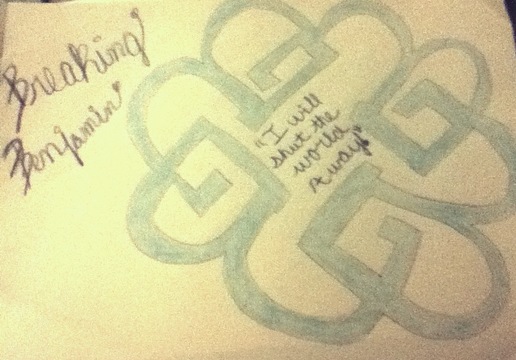 Breaking
Benjamin"
"I will
shut the
world
away"